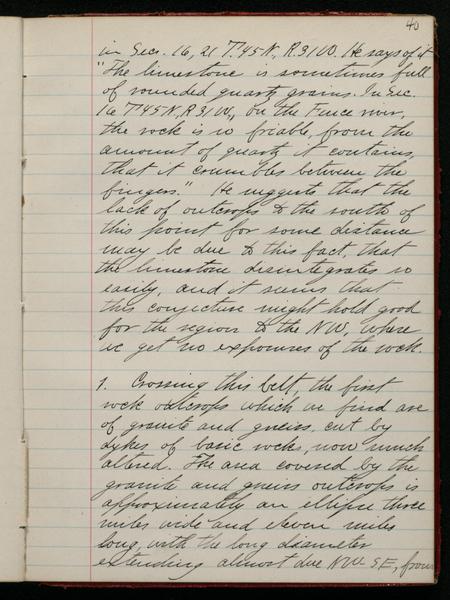 40
in Secs. 16, 21 T.45N, R.31W. He says of it
"The limestone is sometimes full
of rounded quartz grains. In Sec.
16 T45N, R31W, on the Fence river,
the rock is so friable, from the
amount of quartz it contains,
that it crumbles between the
fingers." He suggests that the
lack of outcrops to the south of
this point for some distance
may be due to this fact, that
the limestone disintegrates so
easily, and it seems that
this conjecture might hold good
for the region to the NW, where
we get no exposures of the rock.
1. Crossing this belt, the first
rock outcrops which we find are
of granite and gneiss, cut by
dykes of basic rocks, now much
altered. The area covered by the
granite and gneiss outcrops is
approximately an ellipse three
miles wide and eleven miles
long, with the long diameter
extending almost due NW SE, from